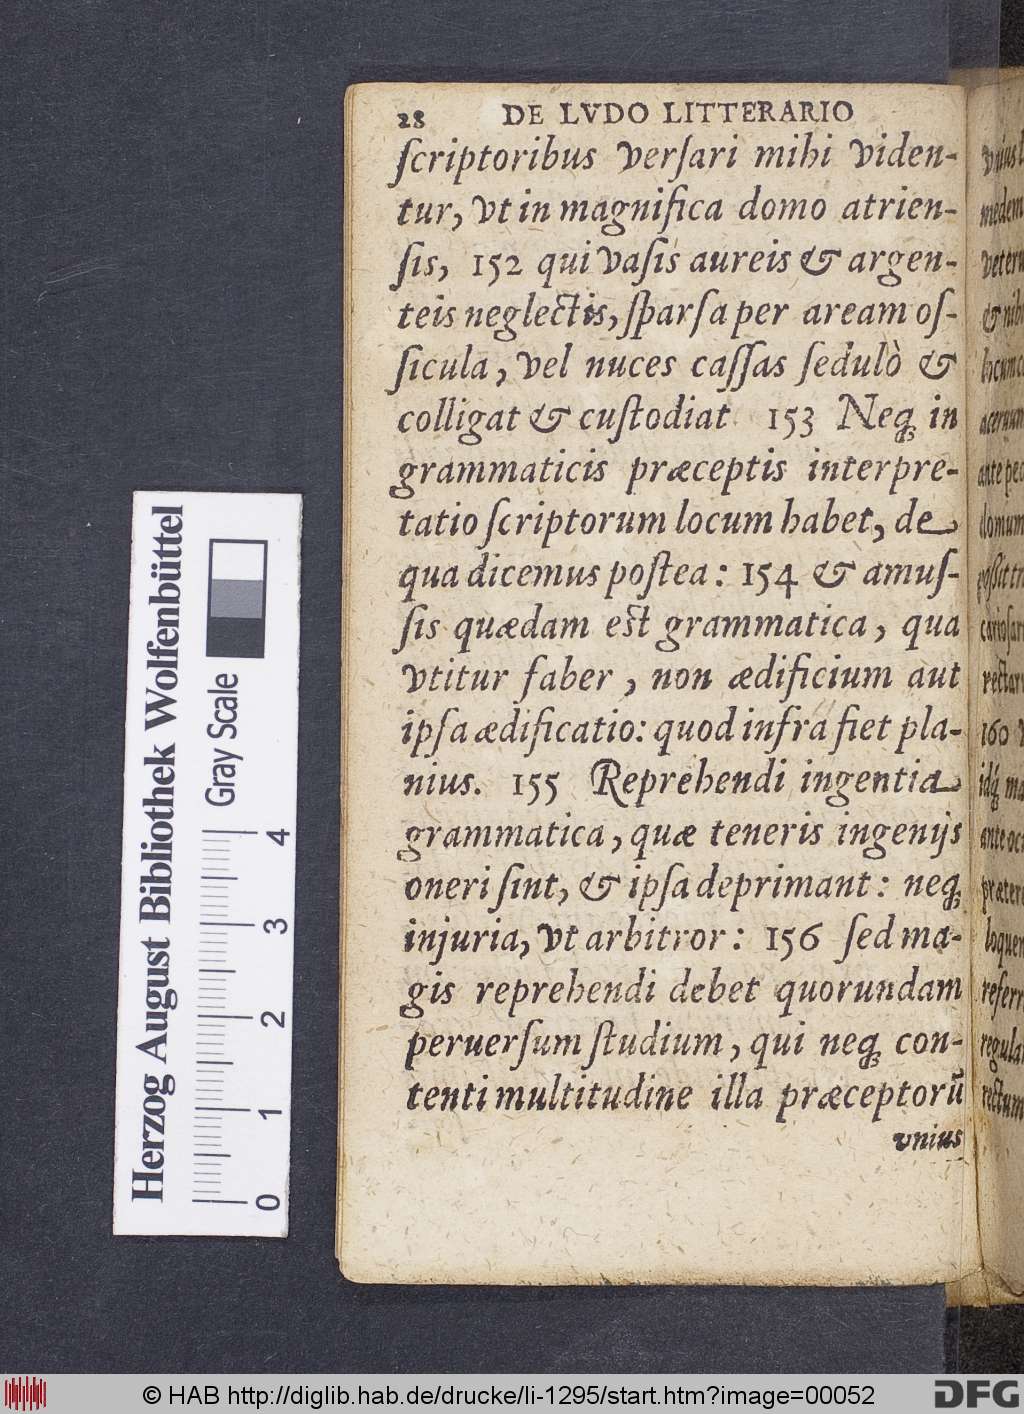 28 DE LVDO LITTERARIO
ſcriptoribus verſari mihi viden-
tur, vt in magnifica domo atrien-
ſis, 152 qui vaſis aureis & argen-
teis neglectis, ſparſa per aream oſ-
ſicula, vel nuces caſſas ſedulò &
colligat & cuſtodiat 153 Neq; in
grammaticis præceptis interpre-
tatio ſcriptorum locum habet, de
qua dicemus poſtea: 154 & amuſ-
ſis quædam est grammatica, qua
vtitur faber, non ædificium aut
ipſa ædificatio: quod infra fiet pla-
nius. 155 Reprehendi ingentia
grammatica, quæ teneris ingenijs
oneri ſint, & ipſa deprimant: neq;
injuria, vt arbitror: 156 ſed ma-
gis reprehendi debet quorundam
peruerſum ſtudium, qui neq; con-
tenti multitudine illa præceptorū
vnius
Herzog August Bibliothek Wolfenbüttel
Gray Scale
0 1 2 3 4
© HAB http://diglib.hab.de/drucke/li-1295/start.htm?image=00052
DFG